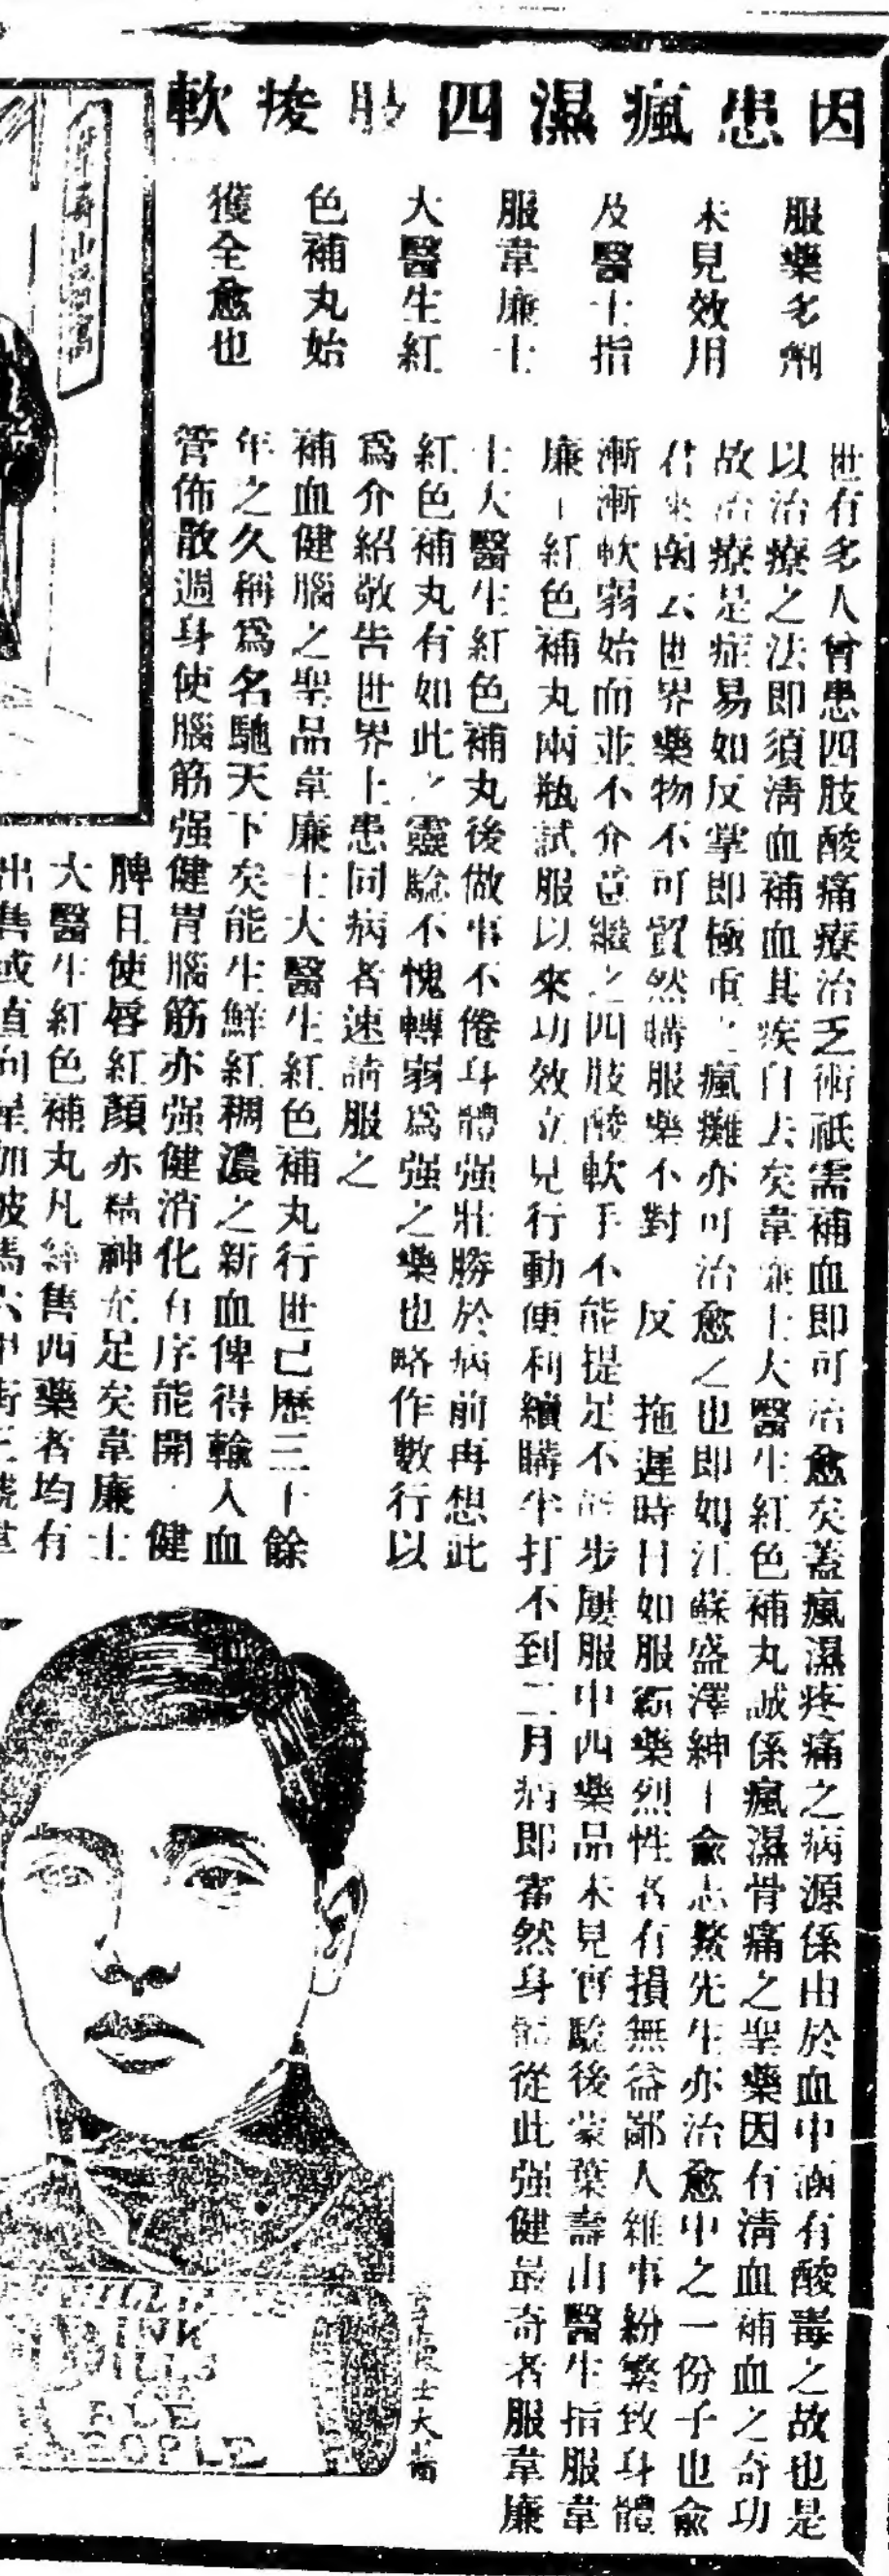 因患瘋濕四肢痠軟
服藥多劑
未見效用
及醫士指
服韋廉士
大醫生紅
色補丸始
獲全愈也
世有多人曾患四肢酸痛療治乏術祇需補血即可治愈矣蓋瘋濕疼痛之病源係由於血中涵有酸毒之故也是
以治療之法即須淸血補血其疾自去矣韋廉士大醫生紅色補丸誠係瘋濕骨痛之聖藥因有淸血補血之奇功
故治療是症易如反掌即極重之瘋癱亦可治愈之也即如江蘇盛澤紳士俞志鰲先生亦治愈中之一份子也俞
君來函云世界藥物不可貿然購服藥不對 反 拖遲時日如服霸藥烈性者有損無益鄙人雜事紛繁致身體
漸漸軟弱始而並不介意繼之四肢酸軟手不能提足不能步屢服中西藥品未見實驗後蒙葉壽山醫生指服韋
廉士紅色補丸兩瓶試服以來功效立見行動便利續購半打不到二月病即霍然身體從此强健最奇者服韋廉
士大醫生紅色補丸後做事不倦身體强壯勝於病前再想此
紅色補丸有如此之靈驗不愧轉弱爲强之藥也略作數行以
爲介紹敬告世界上患同病者速請服之
補血健腦之聖品韋廉士大醫生紅色補丸行世已歷三十餘
年之久稱爲名馳天下矣能生鮮紅稠濃之新血俾得輸入血
管佈散過身使腦筋强健胃腦筋亦强健消化有序能開 健
脾且使唇紅顏亦精神充足矣韋廉士
大醫生紅色補丸凡經售西藥者均有
出售或直向星加坡馬六甲街三號韋
韋廉士大醫
PINK
PILLS
PALE
PEOPLE